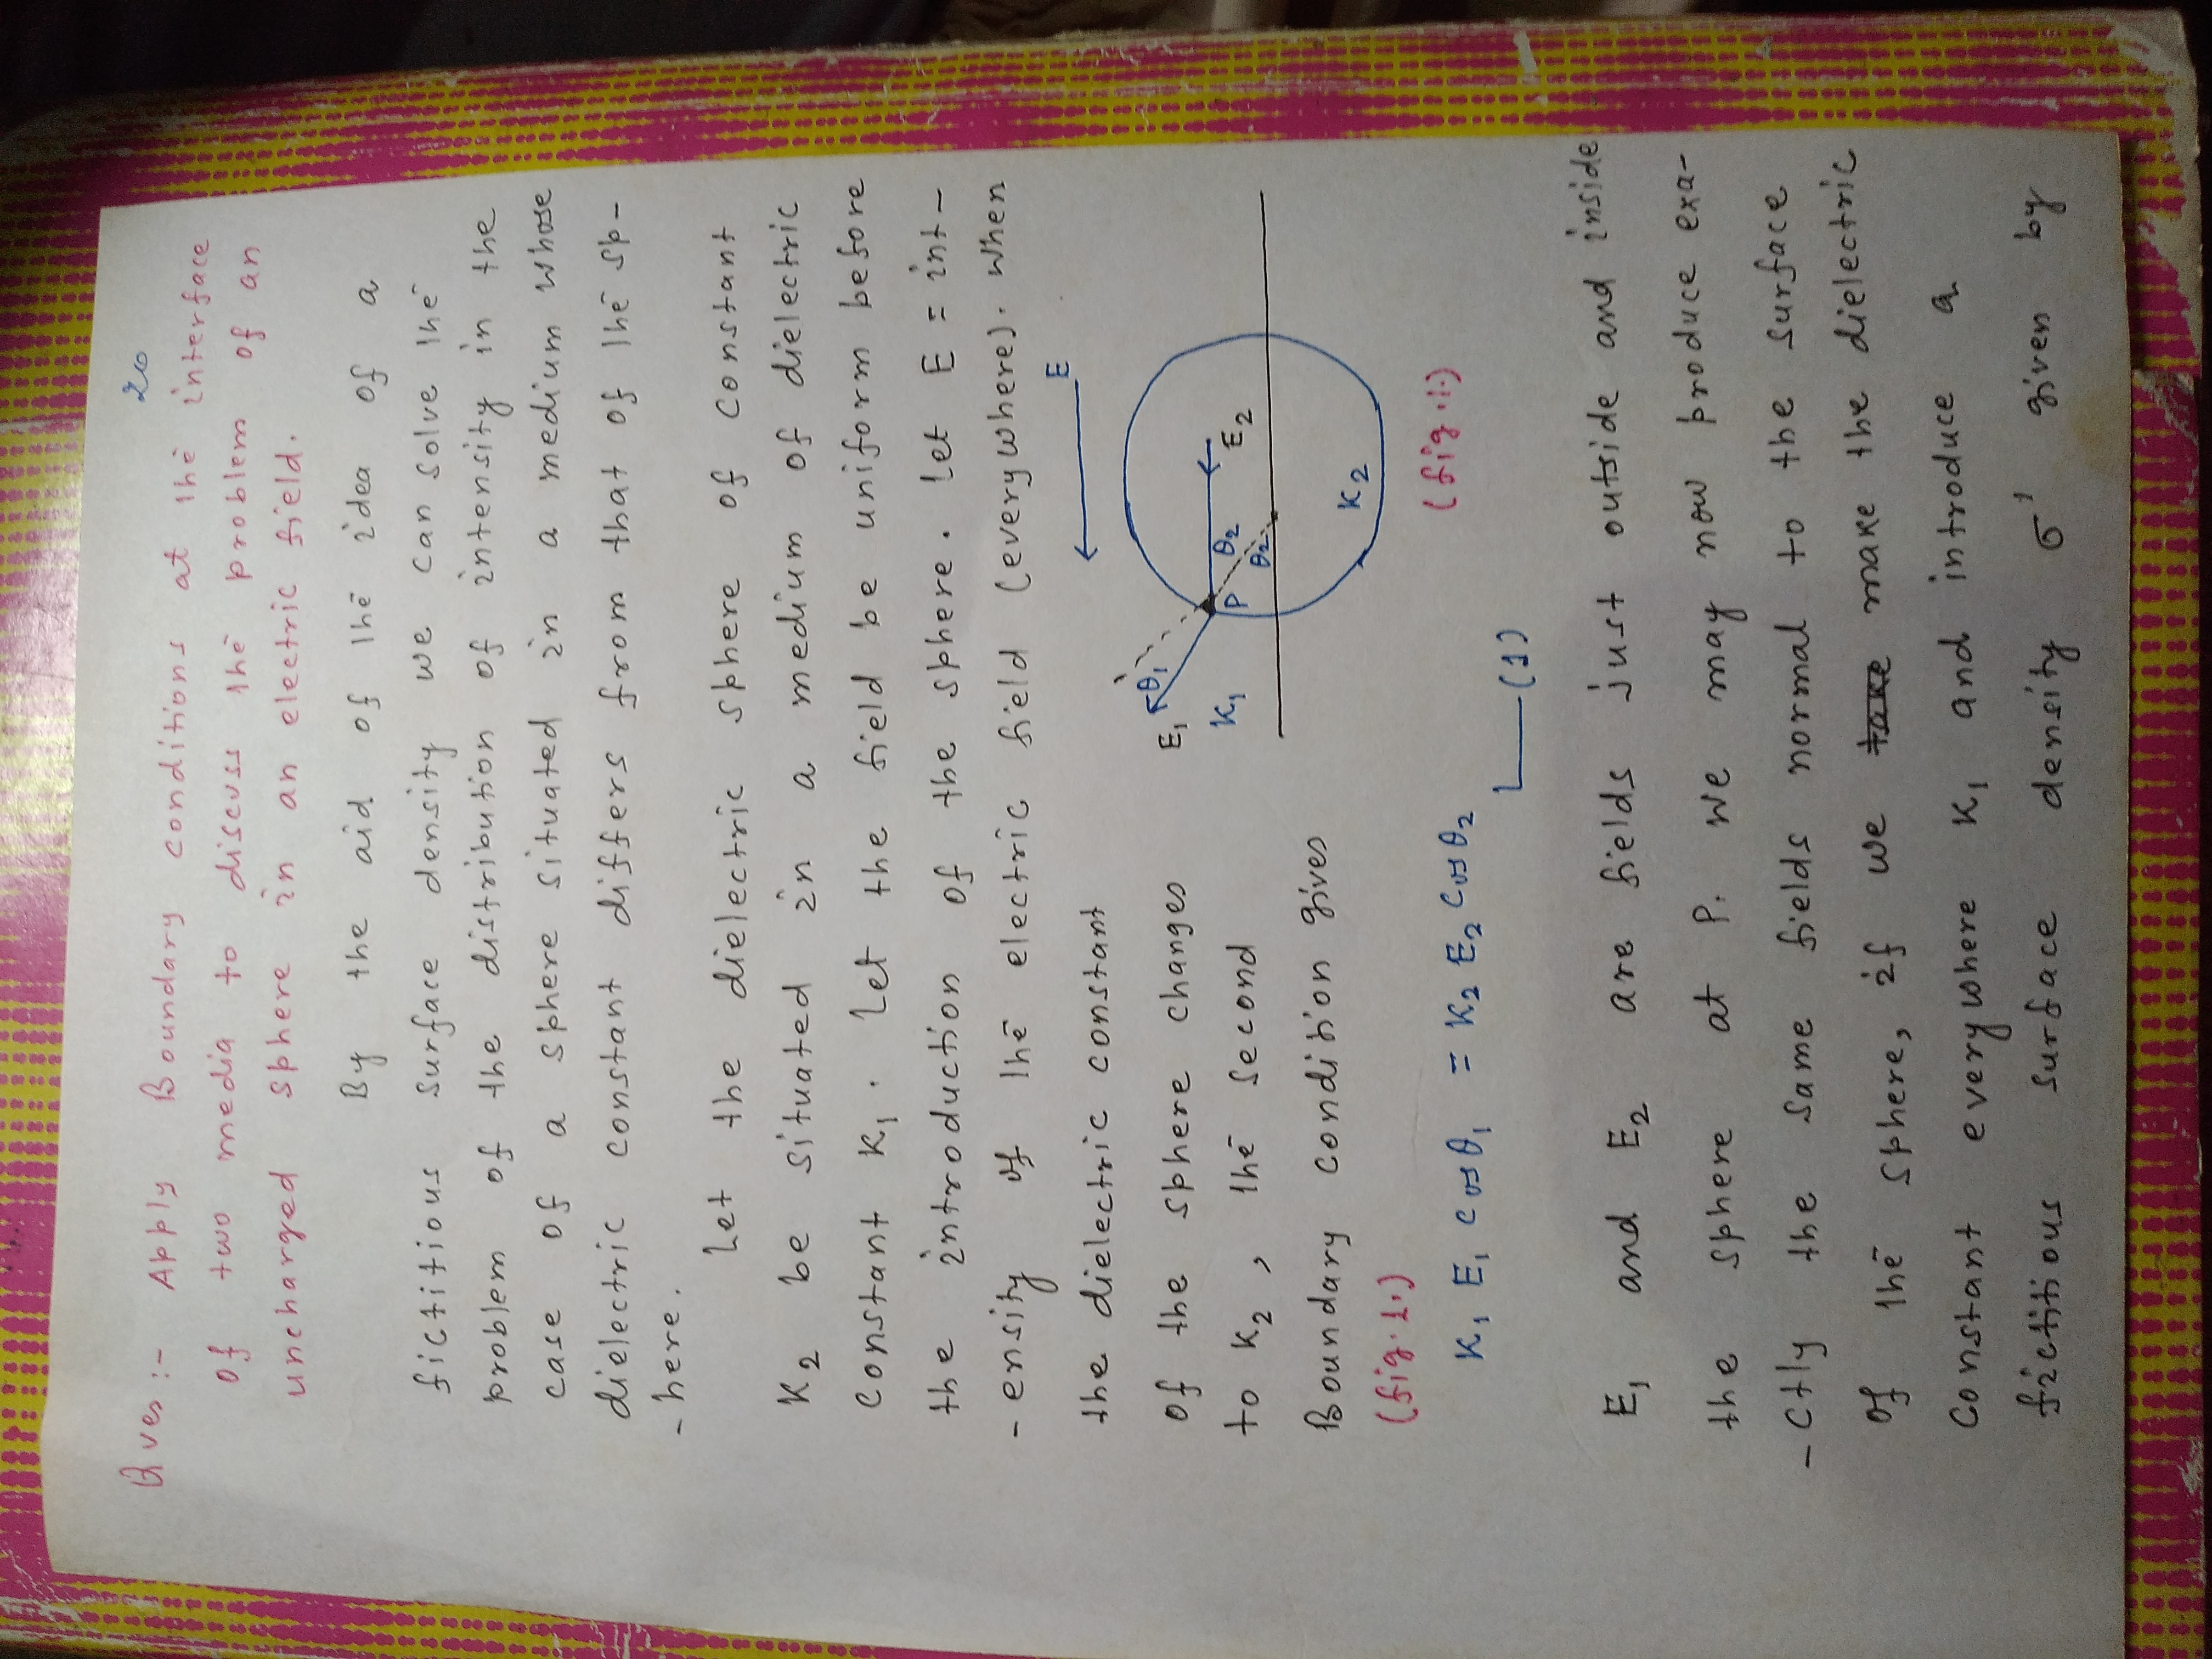 20
Ques:- Apply Boundary conditions at the interface
of two media to discuss the problem of an
uncharged sphere in an electric field.
By the aid of the idea of a
fictitious surface density we can solve the
problem of the distribution of intensity in the
case of a sphere situated in a medium whose
dielectric constant differs from that of the sp-
-here.
Let the dielectric sphere of constant
K₂ be situated in a medium of dielectric
constant K₁. Let the field be uniform before
the introduction of the sphere. Let E = int-
-ensity of the electric field (everywhere). When
the dielectric constant
of the sphere changes
to K₂, the second
Boundary condition gives
(fig.1.)
E
E₁
θ₁
K₁
P
θ₂
θ₂
E₂
K₂
(fig.1.)
K₁ E₁ cosθ₁ = K₂ E₂ cosθ₂
(1)
E₁ and E₂ are fields just outside and inside
the sphere at P. We may now produce exa-
-ctly the same fields normal to the surface
of the sphere, if we take make the dielectric
constant everywhere K₁ and introduce a
fictitious surface density σ' given by